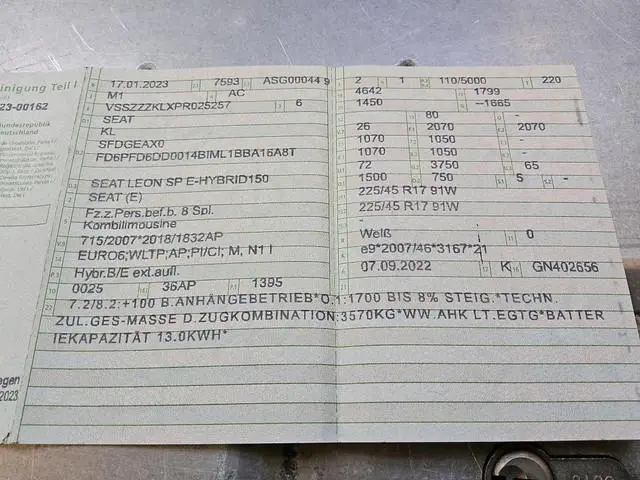 inigung Teil I
23-00162
Bundesrepublik
Deutschland
17.01.2023 7593 ASG00044 9
M1 AC
VSSZZZKLXPR025257 6
SEAT
KL
SFDGEAX0
FD6PFD6DD0014BIML1BBA16A8T
SEAT LEON SP E-HYBRID150
SEAT (E)
Fz.z.Pers.bef.b. 8 Spl.
Kombilimousine
715/2007*2018/1832AP
EURO6;WLTP;AP;PI/CI; M, N1 I
Hybr.B/E ext.aufl.
0025 36AP 1395
2 1 110/5000 220
4642 1799
1450 --1665
80 -
26 2070 2070
1070 1050 -
1070 1050 -
72 3750 65
1500 750 5 -
225/45 R17 91W
225/45 R17 91W
-
Weiß 0
e9*2007/46*3167*21
07.09.2022 K GN402656
7.2/8.2:+100 B.ANHÄNGEBETRIEB*O.1:1700 BIS 8% STEIG.*TECHN.
ZUL.GES-MASSE D.ZUGKOMBINATION:3570KG*WW.AHK LT.EGTG*BATTER
IEKAPAZITÄT 13.0KWH*
egen
2023